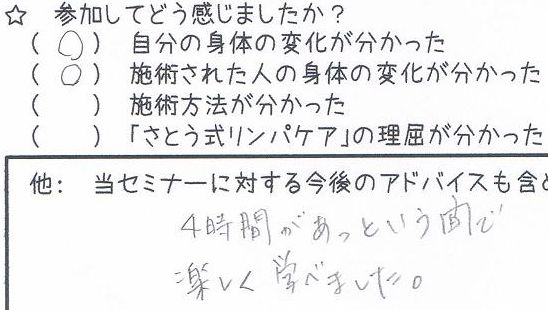 ☆ 参加してどう感じましたか?
(○) 自分の身体の変化が分かった
(○) 施術された人の身体の変化が分かった
( ) 施術方法が分かった
( ) 「さとう式リンパケア」の理屈が分かった
他: 当セミナーに対する今後のアドバイスも含
4時間があっという間で
楽しく学べました。